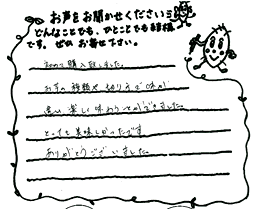 お声をお聞かせください
どんなことでも、ひとことでも結構
です。ぜひお寄せ下さい。
初めて購入致しました。
お茶の種類や切り方で味が
違い楽しく味わうことができました。
とっても美味しかったです
ありがとうございました。